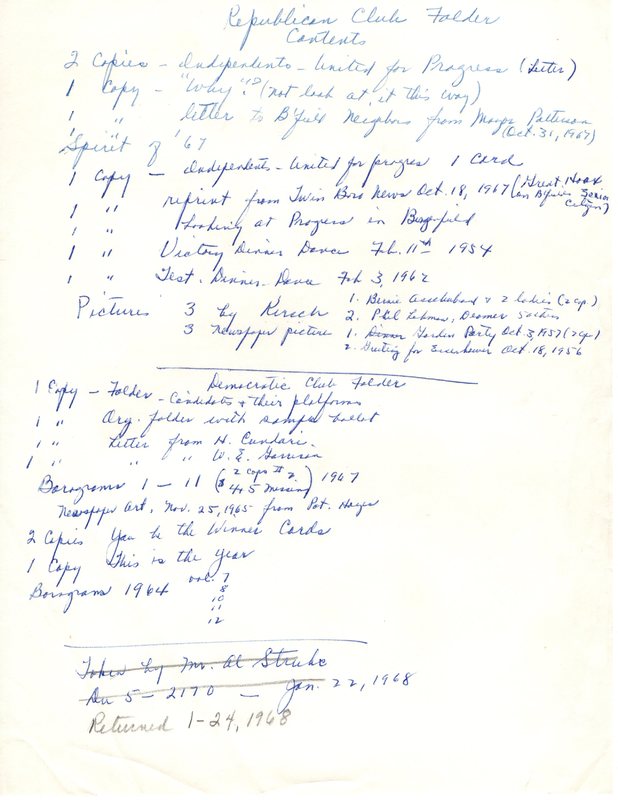 Republican Club Folder
Contents
2 Copies - Independents - United for Progress (Letter)
1 Copy - "Why"!? (not look at it this way)
1 " letter to B'field Neighbors from Mayor Patterson (Oct. 31, 1967)
Spirit of '67
1 Copy - Independents - United for progres 1 Card
1 " reprint from Twin Boro News Oct. 18, 1967 (Great Hoax on B'field Senior Citizens)
1 " Looking at Progress in Bergenfield
1 " Victory Dinner Dance Feb. 11th 1954
1 " Test. Dinner-Dance Feb 3, 1962
Pictures 3 by Kirsch 1. Bernie & 2 ladies (2 cp.)
2. Phil Lehman,
3 newspaper picture 1. Dinner Garden Party Oct 3, 1957 (2 cp)
2. Greeting for Eisenhower Oct. 18, 1956
Democratic Club Folder
1 Copy - Folder - Candidates & their platforms
1 " Org. folder with sample ballot
1 " Letter from H. Cundari.
1 " " " W. E. Garrison
Borograms 1 - 11 (2 cops # 2 4 & 5 missing) 1967
Newspaper Art. Nov. 25, 1965 from Pat. Hayes
2 Copies You be the Winner Cards
1 Copy This is the Year
Borograms 1964 vol. 7
8
10
11
12
Taken by Mr. Al Strube
Du 5-2170 - Jan. 22, 1968
Returned 1-24, 1968